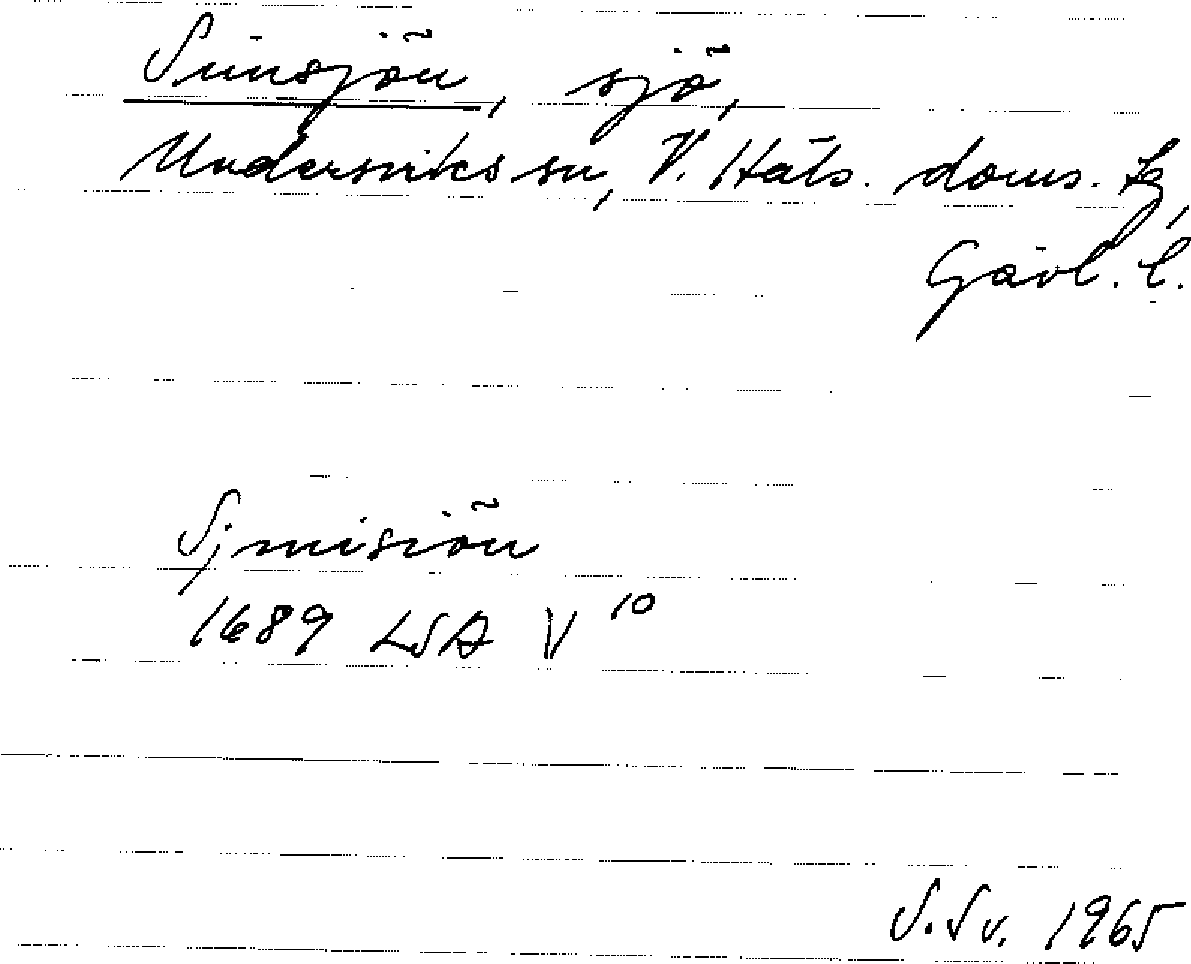 Simsjön, sjö,
Undersviks sn, V. Häls. doms. tg,
Gävl. l.
Sjmisiön
1689 LSA V 10
S.Sv. 1965